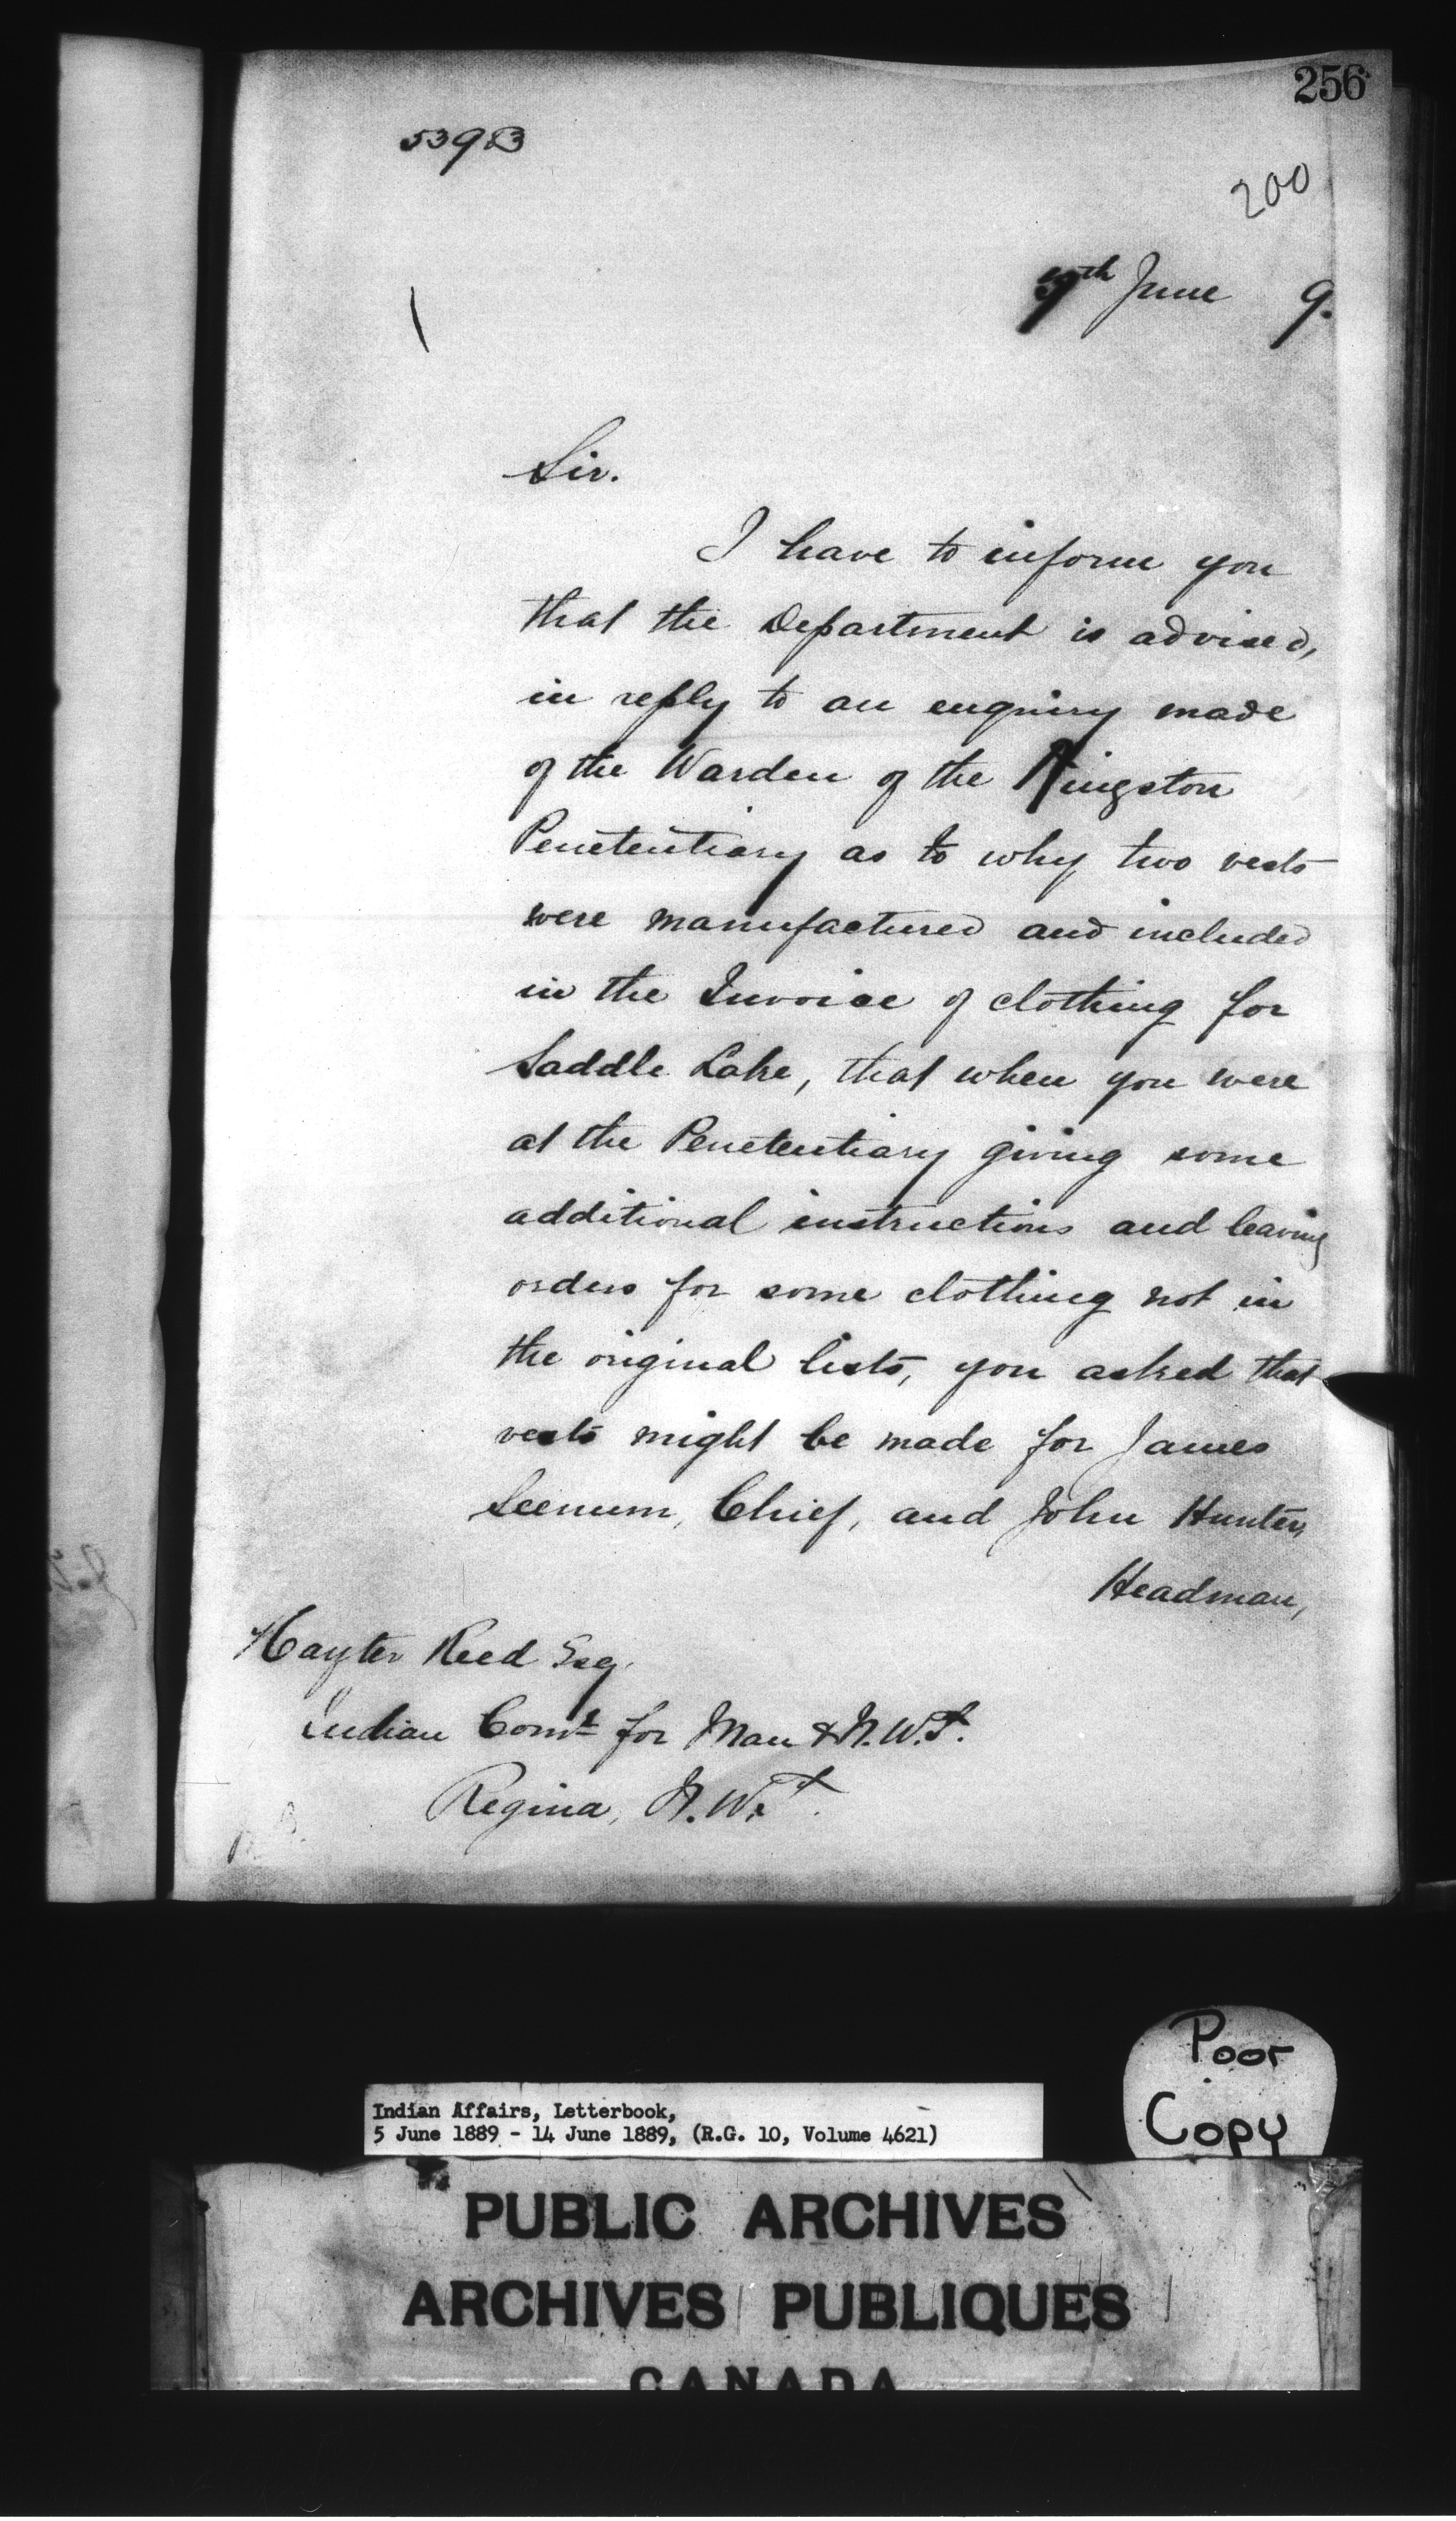 256
539B
200
7th June 9.
Sir.
I have to inform you
that the Department is advised,
in reply to an enquiry made
of the Warden of the Kingston
Penetentiary as to why two vests
were manufactured and included
in the Invoice of clothing for
Saddle Lake, that when you were
at the Penetentiary giving some
additional instructions and leaving
orders for some clothing not in
the original lists, you asked that
vests might be made for James
Seenum, Chief, and John Hunter,
Headman,
Hayter Reed Esq.
Indian Comr for Man & N.W.T.
Regina, N.W.T.
Poor
Copy
Indian Affairs, Letterbook,
5 June 1889 - 14 June 1889, (R.G. 10, Volume 4621)
PUBLIC ARCHIVES
ARCHIVES PUBLIQUES
CANADA